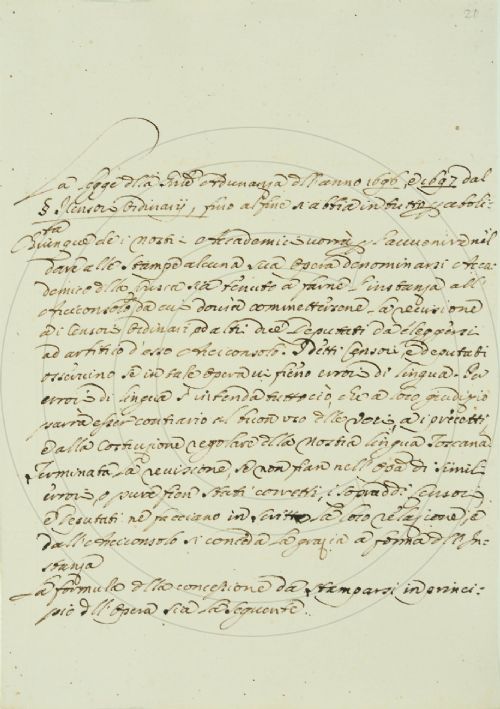 20
La Legge della Sud.ª ordinanza dell'anno 1696, e 1697 dal
§. I Censori Ordinarij, fino al fine s'abbia in tutto p. aboli-
ta
Chiunque de i nostri Accademici vorrà p. l'avvenire nel
dare alle Stampe alcuna sua Opera denominarsi Acca-
demico della Crusca sia tenuto a farne l'instanza all'
Arciconsolo, da cui dovrà commettersene la revisione
a i Censori Ordinarij, o da altri due Deputati da eleggersi
ad arbitrio d'esso Arciconsolo. I detti Censori, e Deputati
osservino se in tale Opera vi sieno errori di lingua. Per
errori di lingua s'intenda tutto ciò, che a loro giudizio
parrà esser contrario al buon uso delle voci, a i precetti
e alla Costruzione regolare della nostra lingua Toscana.
Terminata la revisione se non sian nell'Opa di simili
errori o pure sien stati corretti, i sopradd.i Censori
e Deputati ne facciano in scritto la loro relazione, e
dall'Arciconsolo si conceda la grazia a forma dell'In-
stanza
La formula della concessione da stamparsi in princi-
pio dell'Opera sia la seguente